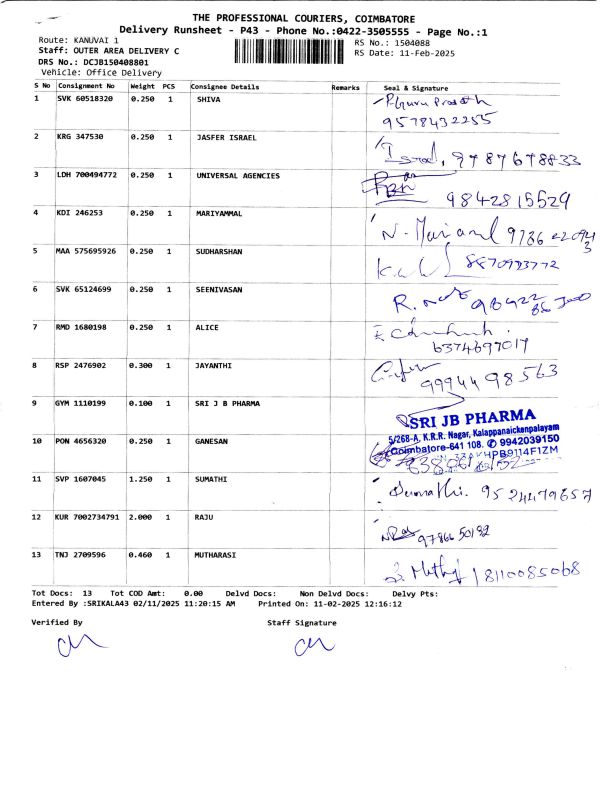 THE PROFESSIONAL COURIERS, COIMBATORE
Delivery Runsheet - P43 - Phone No.:0422-3505555 - Page No.:1
Route: KANUVAI 1 RS No.: 1504088
Staff: OUTER AREA DELIVERY C RS Date: 11-Feb-2025
DRS No.: DCJB150408801
Vehicle: Office Delivery
S No Consignment No Weight PCS Consignee Details Remarks Seal & Signature
1 SVK 60518320 0.250 1 SHIVA
9578432255
2 KRG 347530 0.250 1 JASFER ISRAEL
9787678833
3 LDH 700494772 0.250 1 UNIVERSAL AGENCIES
9842815529
4 KDI 246253 0.250 1 MARIYAMMAL
5 MAA 575695926 0.250 1 SUDHARSHAN
6 SVK 65124699 0.250 1 SEENIVASAN
7 RMD 1680198 0.250 1 ALICE
6374697017
8 RSP 2476902 0.300 1 JAYANTHI
9994498563
9 GYM 1110199 0.100 1 SRI J B PHARMA
SRI JB PHARMA
5/268-A, K.R.R. Nagar, Kalappanaickenpalayam
10 PON 4656320 0.250 1 GANESAN
Coimbatore-641 108. ✆ 9942039150
11 SVP 1607045 1.250 1 SUMATHI
Sumathi. 9524479657
12 KUR 7002734791 2.000 1 RAJU
13 TNJ 2709596 0.460 1 MUTHARASI
8110085068
Tot Docs: 13 Tot COD Amt: 0.00 Delvd Docs: Non Delvd Docs: Delvy Pts:
Entered By :SRIKALA43 02/11/2025 11:20:15 AM Printed On: 11-02-2025 12:16:12
Verified By Staff Signature